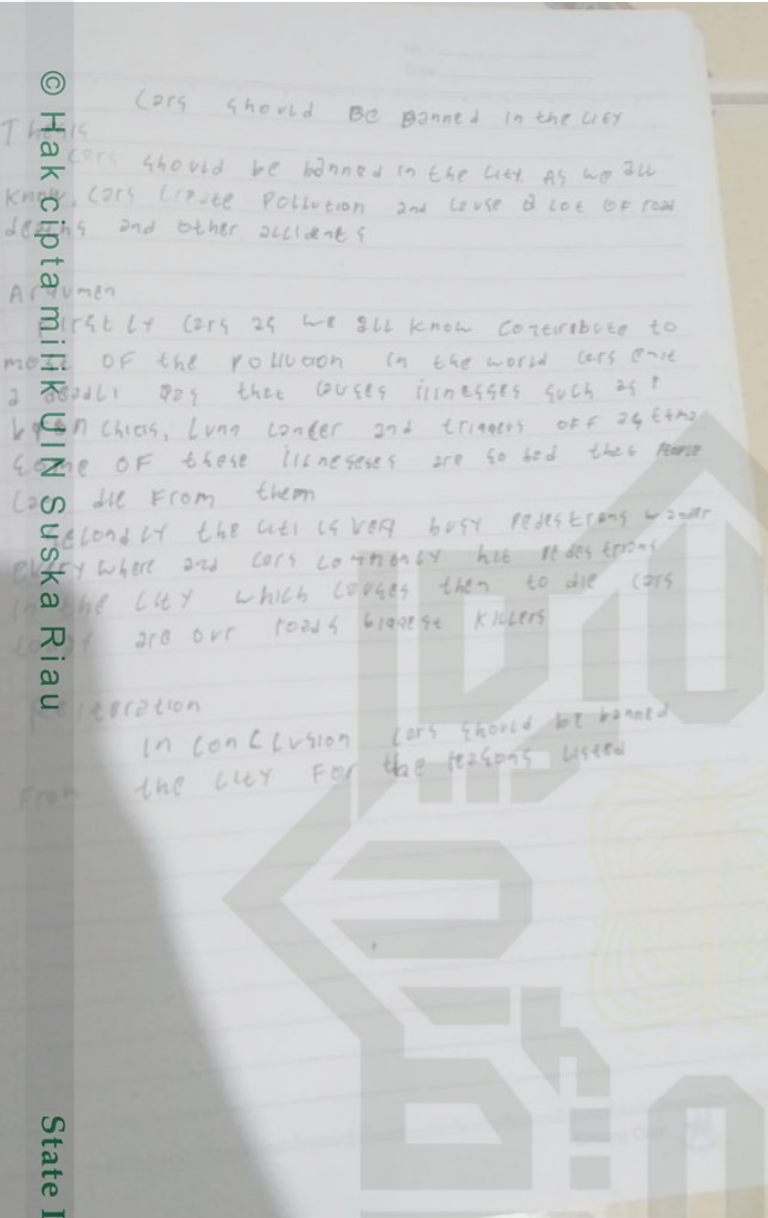 © Hak cipta milik UIN Suska Riau
State I
Cars should Be Banned in the city
Thesis
Cars should be banned in the city As we all
know, cars create Pollution and couse a lot oF road
deaths and other accidents
Argumen
Firstly Cars as we all know Contribute to
most OF the Pollution in the world cars emit
a deadli gas that causes illnesses such as
bronchitis, lung cancer and triggers oFF
some OF these are so bad that People
can die From them
secondly the citi is very busy Pedestrans wander
everywhere and cars commonly hit Pedestrians
in the city which couses then to die cars
are our roads biggest killers
In conclusion cars should be banned
From the city For the reasons Listed